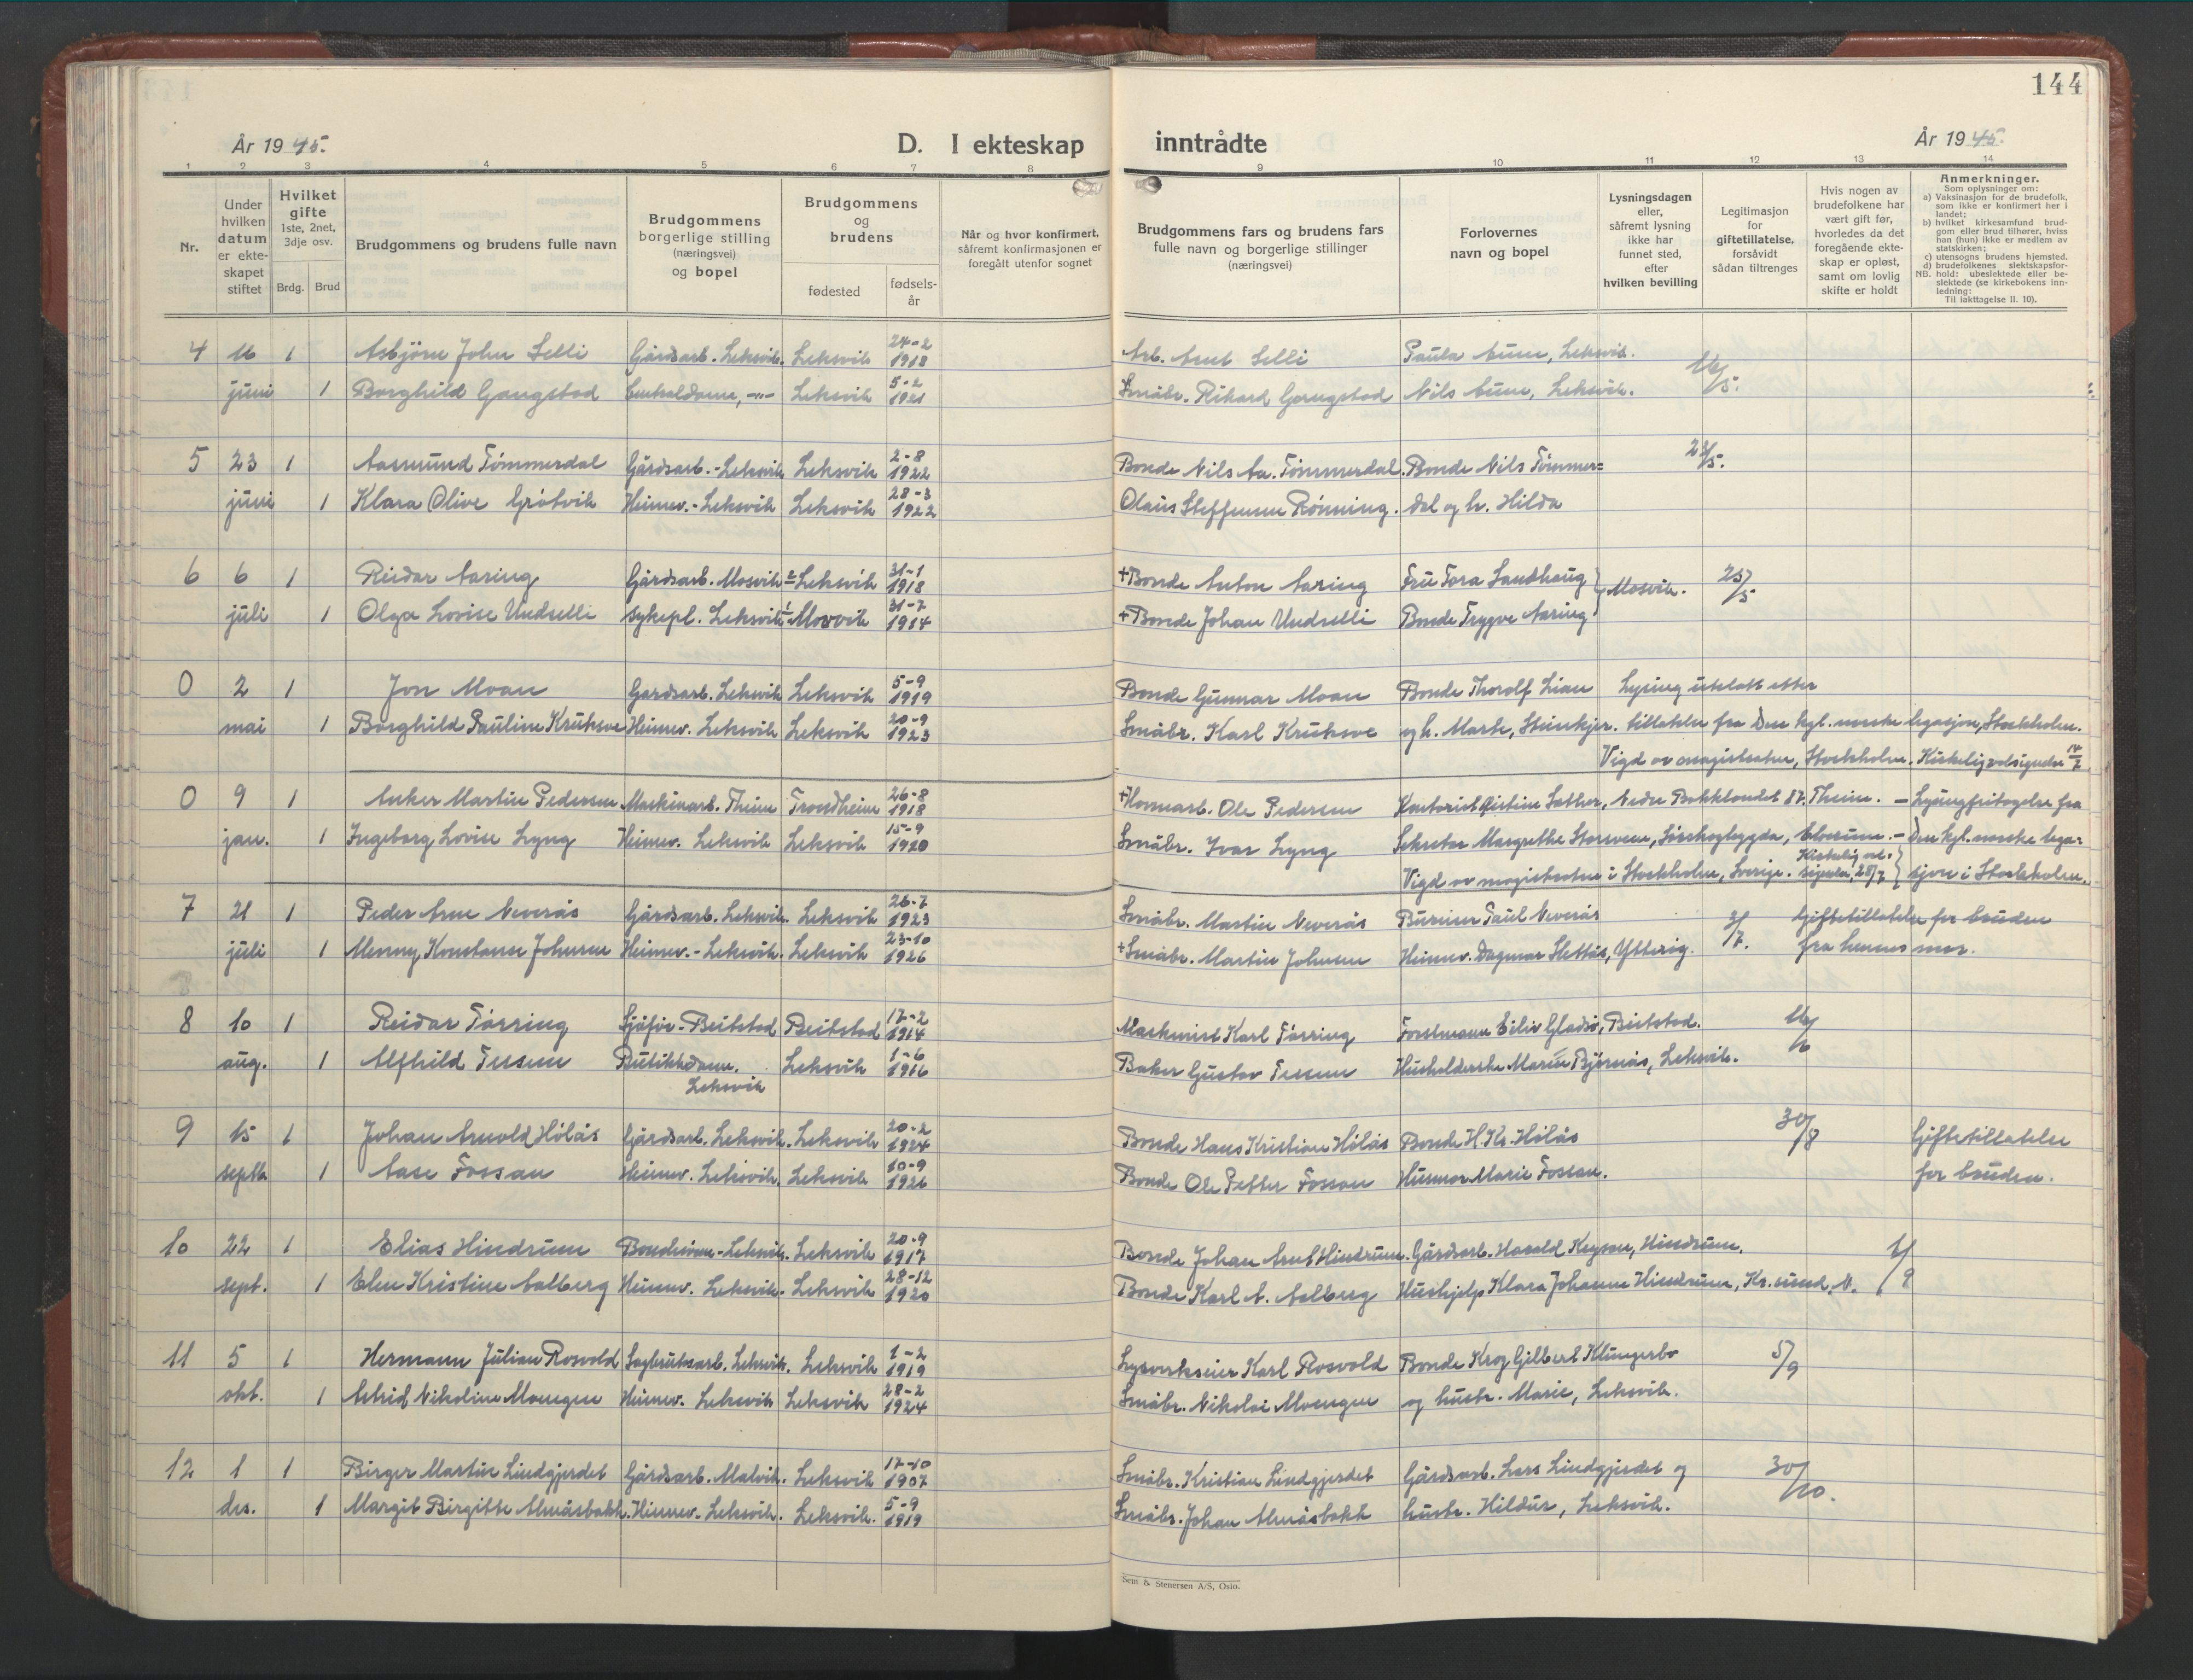 144
År 1945.
D. I ekteskap inntrådte
År 1945.
1 2 3 4 5 6 7 8 9 10 11 12 13 14
Nr.
Under hvilken datum er ekteskapet stiftet
Hvilket gifte 1ste, 2net, 3dje osv.
Brdg. Brud
Brudgommens og brudens fulle navn
Brudgommens borgerlige stilling (næringsvei) og bopel
Brudgommens og brudens
fødested
fødselsår
Når og hvor konfirmert, såfremt konfirmasjonen er foregått utenfor sognet
Brudgommens fars og brudens fars fulle navn og borgerlige stillinger (næringsvei)
Forlovernes navn og bopel
Lysningsdagen eller, såfremt lysning ikke har funnet sted, efter hvilken bevilling
Legitimasjon for giftetillatelse, forsåvidt sådan tiltrenges
Hvis nogen av brudefolkene har vært gift før, hvorledes da det foregående ekteskap er opløst, samt om lovlig skifte er holdt
Anmerkninger.
Som oplysninger om:
a) Vaksinasjon for de brudefolk, som ikke er konfirmert her i landet;
b) hvilket kirkesamfund brudgom eller brud tilhører, hviss han (hun) ikke er medlem av statskirken;
c) utensogns brudens hjemsted.
d) brudefolkenes slektskapsforhold: ubeslektede eller beslektede (se kirkebokens innledning:
NB.
Til iakttagelse II. 10).
4 16 1 Asbjørn John Selli Gårdsarb. Leksvik. Leksvik 24-2 1918 Arb. Arnt Selli Paula Aune, Leksvik. 16/5.
juni 1 Borghild Gangstad -"- Leksvik 5-2 1921 Småbr. Rikard Gangstad Nils Aune, Leksvik.
5 23 1 Aasmund Tømmerdal Gårdsarb.-Leksvik Leksvik 2-8 1922 Bonde Nils Aa. Tømmerdal. Bonde Nils Tømmer= 23/5.
juni 1 Klara Olive Grötvik Heimev.-Leksvik Leksvik 28-3 1922 Olaus Steffensen Rønning. dal og h. Hilda
6 6 1 Reidar Aaring Gårdsarb. Mosvik 2 Leksvik 31-1 1918 +Bonde Anton Aaring Fru Tora Sandhaug } Mosvik. 25/5
juli 1 Olga Lovise Undselli sykepl. Leksvik 1 Mosvik 31-7 1914 +Bonde Johan Undselli Bonde Trygve Aaring
0 2 1 Jon Moan Gardsarb. Leksvik Leksvik 5-9 1919 Bonde Gunnar Moan Bonde Thorolf Lian Lysing utelatt etter
mai 1 Borghild Pauline Kruksve Heimev. Leksvik Leksvik 20-9 1923 Småbr. Karl Kruksve og h. Marta, Steinkjer. tillatelse fra Den kgl. norske legasjon, Stockholm.
Vigd av magistraten, Stockholm. Kirkelig velsignelse 14/7
0 9 1 Anker Martin Pedersen Maskinarb. Theim Trondheim 26-8 1918 +Havnarb. Ole Pedersen Kontorist Kristine Sæther, Nedre Bakklandet 87, Theim. - Lysingfritagelse fra
jan. 1 Ingeborg Lovise Lyng Heimev. Leksvik Leksvik 15-9 1920 Småbr. Ivar Lyng Sekretær Margrethe Storsveen, Sørskogbygda, Elverum. - Den kgl. norske lega=
Vigd av magistraten i Stockholm, Sverige. Kirkelig vel-signelse, 28/7 } sjon i Stockholm.
7 21 1 Peder Arne Neverås Gårdsarb. Leksvik. Leksvik 26-7 1923 Småbr. Martin Neverås Bureiser Paul Neverås 3/7. Giftetillatelse for bruden
juli 1 Menny Konstanse Johnsen Heimev.-Leksvik. Leksvik 23-10 1926 +Småbr. Martin Johnsen Heimev. Dagmar Slettås, Ytterøy. fra hennes mor.
8 10 1 Reidar Tørring Sjåfør-Beitstad Beitstad 17-2 1914 Maskinist Karl Tørring Forstmann Eiliv Gladsø, Beitstad. 16/6
aug. 1 Alfhild Tessem Butikkdame. Leksvik Leksvik 1-6 1916 Baker Gustav Tessem Husholderske Marie Bjørnås, Leksvik.
9 15 1 Johan Arnold Hölås Gårdsarb. Leksvik. Leksvik 20-2 1924 Bonde Hans Kristian Hölås Bonde H. Kr. Hölås 30/8 Giftetillatelse
septb. 1 Aase Fossan Heimev. Leksvik. Leksvik 10-9 1926 Bonde Ole Petter Fossan Husmor Marie Fossan. for bruden.
10 22 1 Elias Hindrum Leksvik. Leksvik 20-9 1917 Bonde Johan Arnt Hindrum. Gårdsarb. Harald Keyson, Hindrum. 6/9
sept. 1 Elen Kristine Aalberg Heimev. Leksvik. Leksvik 28-12 1920 Bonde Karl A. Aalberg Hushjelp Klara Johanne Hindrum, Kr.sund. N.
11 5 1 Hermann Julian Rosvold Sagbruksarb. Leksvik. Leksvik 1-2 1919 Lysverkseier Karl Rosvold Bonde Krog Gilbert Klungerbo 5/9
okt. 1 Astrid Nikoline Moengen Heimev. Leksvik Leksvik 28-2 1924 Småbr. Nikolai Moengen og hustr. Marie, Leksvik.
12 1 1 Birger Martin Lindgjerdet Gårdsarb. Malvik. Leksvik 17-10 1907 Småbr. Kristian Lindgjerdet Gårdsarb. Lars Lindgjerdet og 30/10.
des. 1 Margit Birgitte Almåsbakk. Heimev. Leksvik. Leksvik. 5-9 1919 Småbr. Johan Almåsbakk hustr. Hildur, Leksvik.
Sem & Stenersen A/S, Oslo.